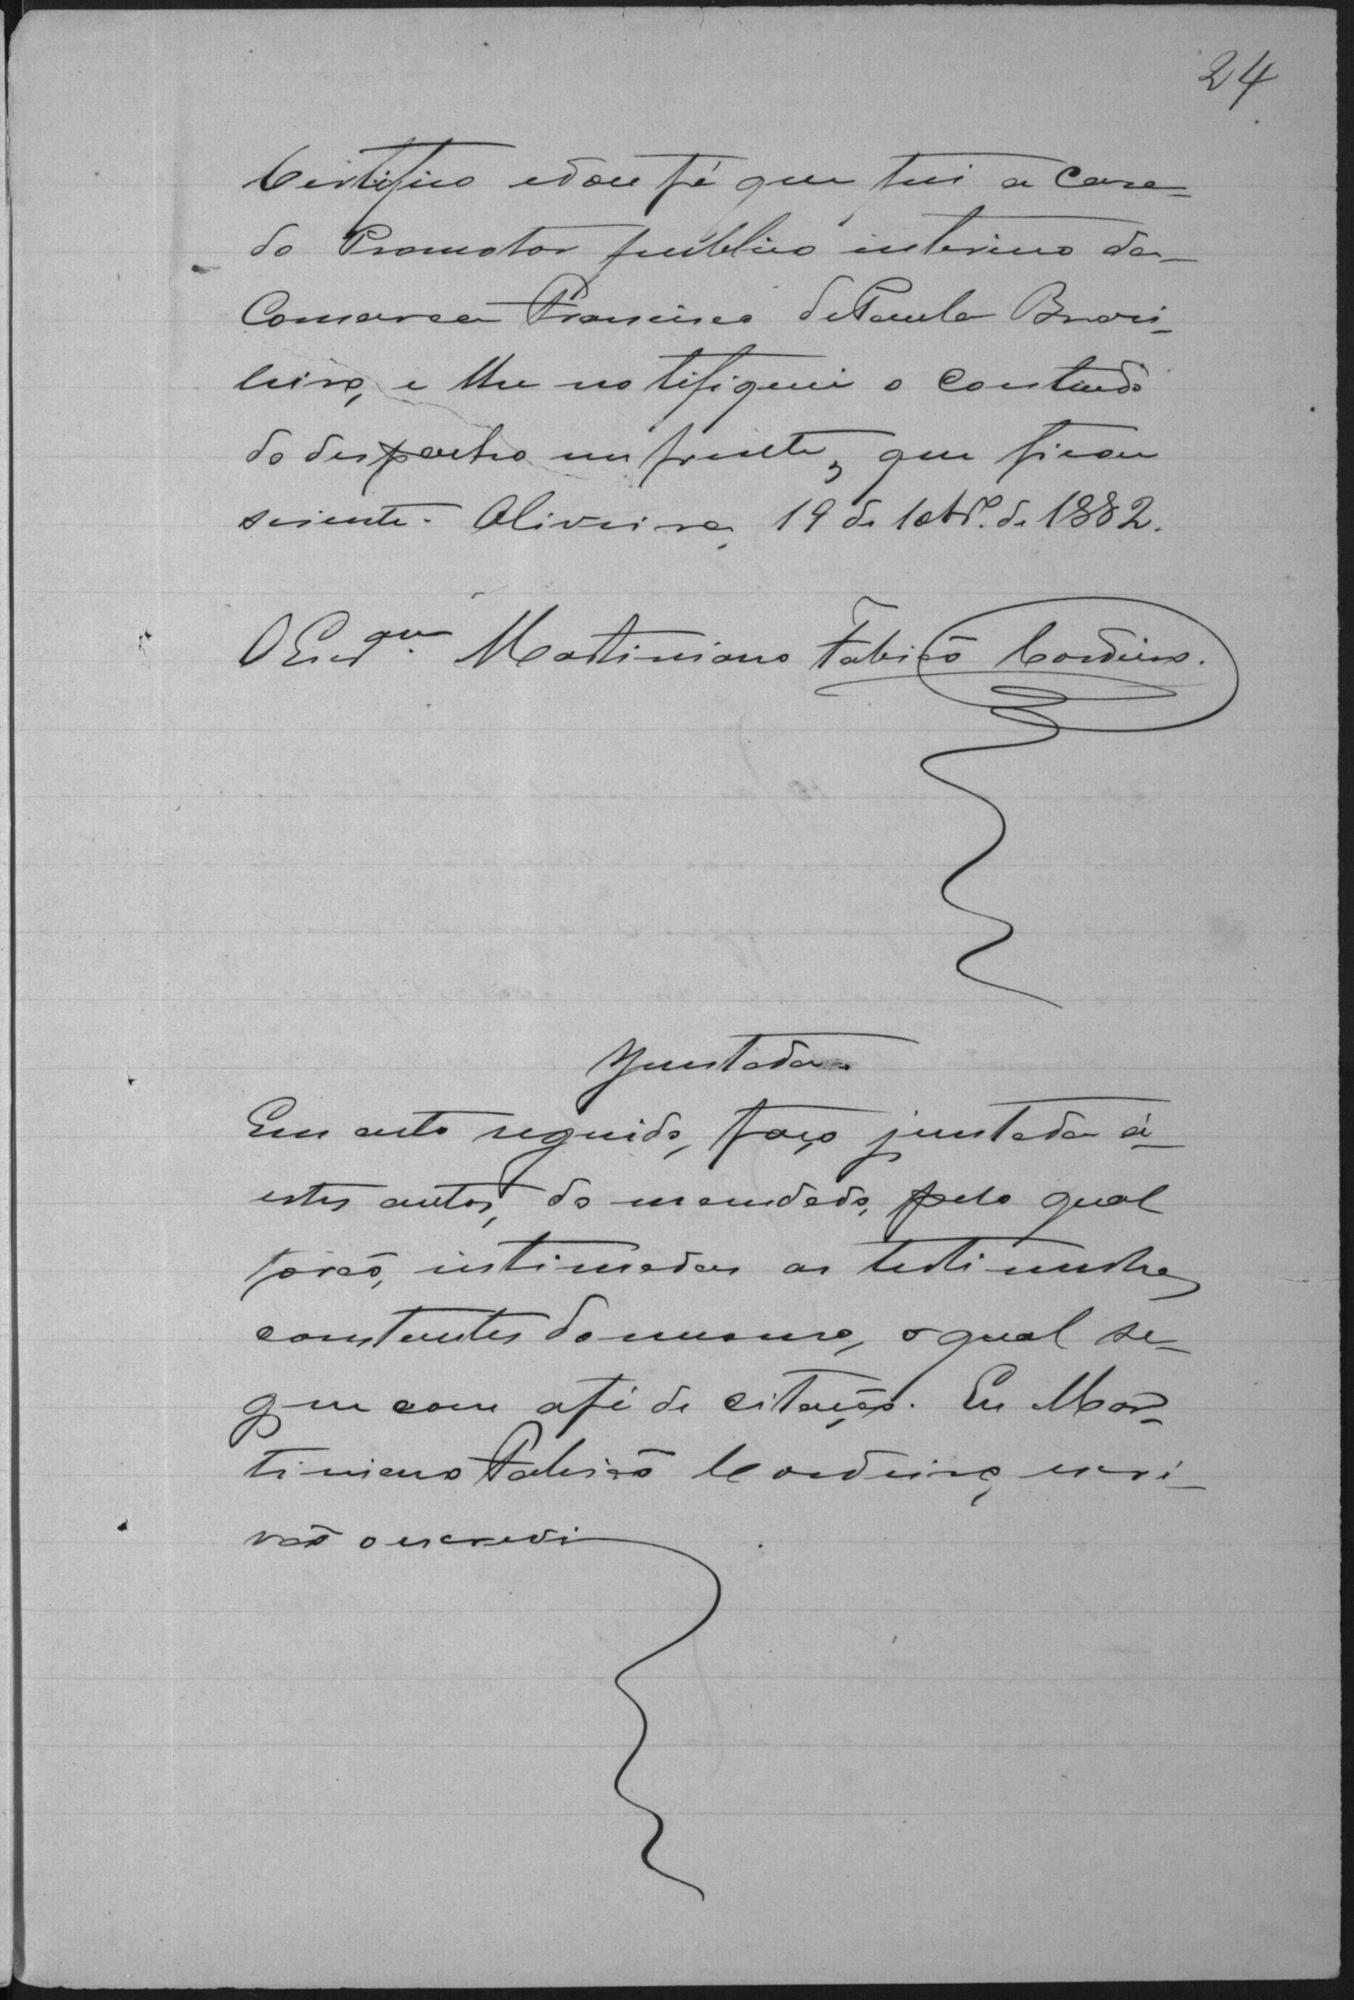 24
Certifico e dou fé que fui a casa
do Promotor publico interino da
Comarca Francisco de Paula Brasi-
leiro, e lhe notifiquei o contendo
do despacho em frente, que ficou
sciente. Oliveira, 19 de de 1882.
O Escram. Martiniano Fabião Cordeiro.
Juntada.
Em acto seguido, faço juntada á
estes autos, do mandado, pelo qual
forão, intimadas as testimunhas
constantes do mesmo, o qual se-
gue com a fé de citação. Eu Mar-
tiniano Fabião Cordeiro, escri-
vão o escrevi